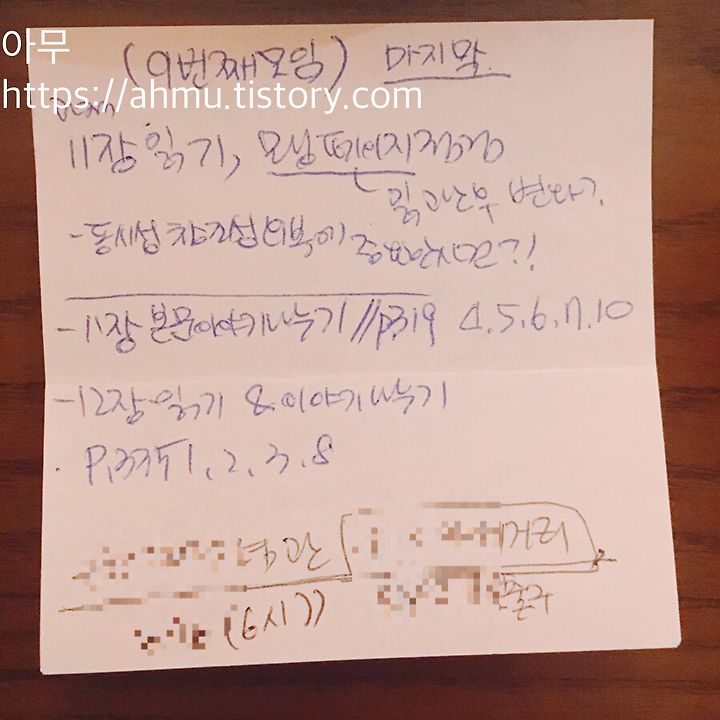 아무
https://ahmu.tistory.com
(9번째모임) 마지막
11장 읽기, 모닝페이지점검
읽고난후 변화?
-동시성 창조성회복에 중요한사건?!
-11장 본문이야기나누기 //p.319 4.5.6.7.10
-12장 읽기 & 이야기나누기
P.335 1, 2, 3, 8
(6시)